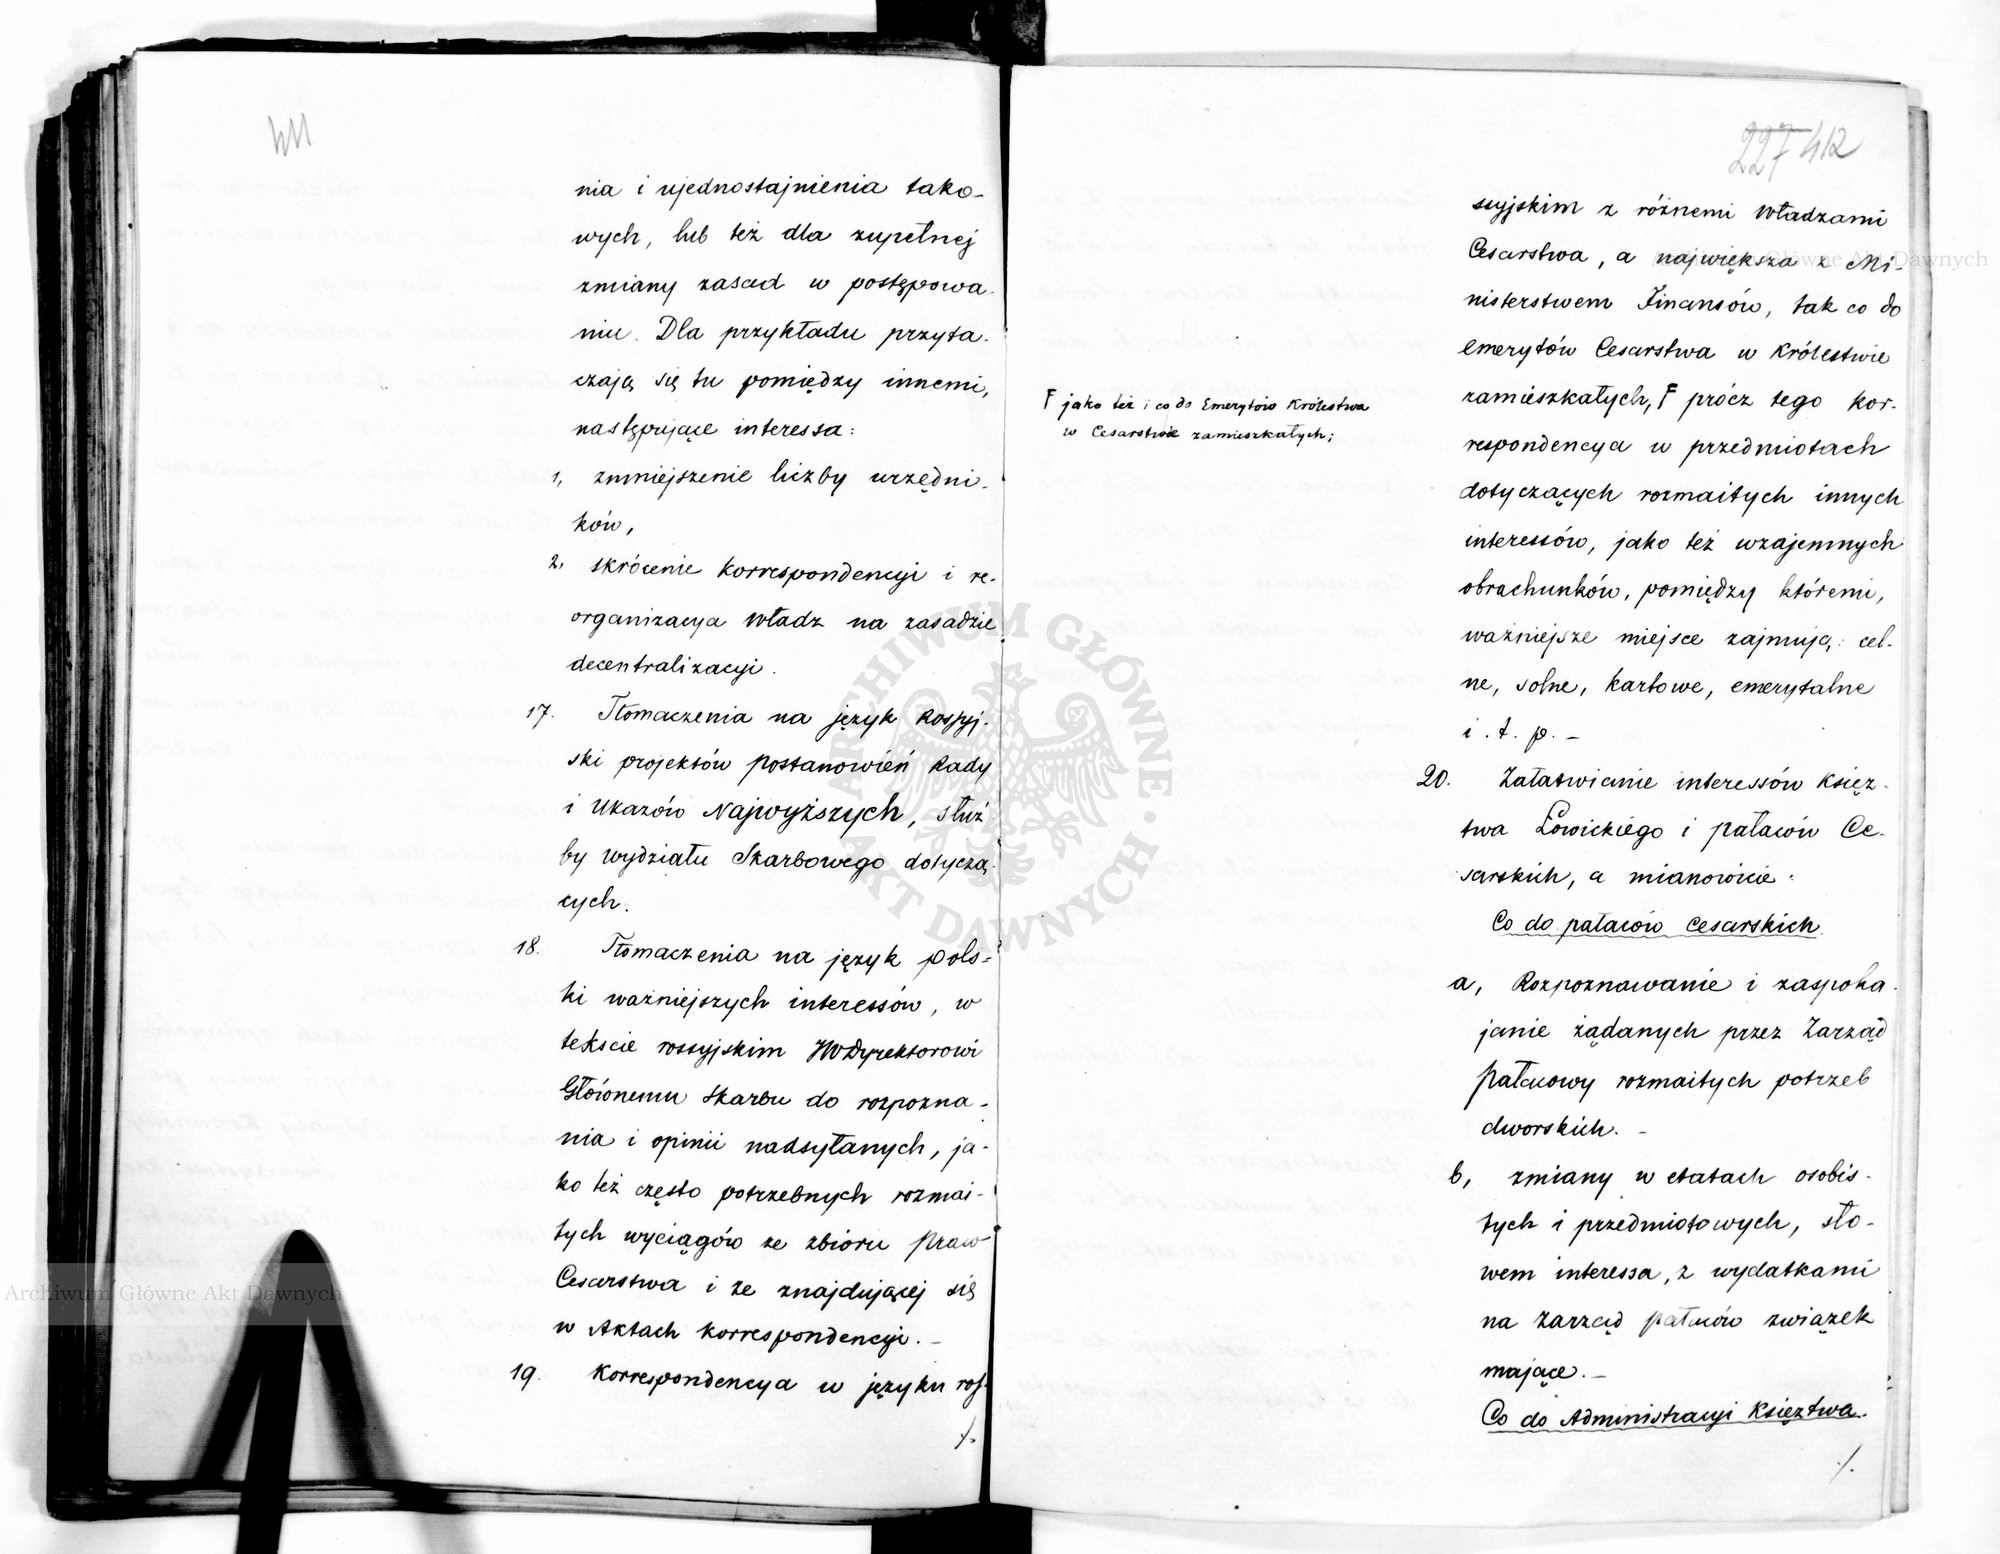 411
nia i ujednostajnienia tako-
wych, lub też dla zupełnej
zmiany zasad w postępowa-
niu. Dla przykładu przyta-
czają się tu pomiędzy innemi,
następujące interessa:
1, zmniejszenie liczby urzędni-
ków,
2, skrócenie korrespondencyi i re-
organizacya Władz na zasadzie
decentralizacyi.
17. Tłomaczenia na język Rossyj-
ski projektów postanowień Rady
i Ukazów Najwyższych, służ-
by wydziału Skarbowego dotyczą-
cych.
18. Tłomaczenia na język pols-
ki ważniejszych interessów, w
tekście rossyjskim Dyrektorowi
Głównemu Skarbu do rozpozna-
nia i opinii nadsyłanych, ja-
ko też często potrzebnych rozmai-
tych wyciągów ze zbioru Praw
Cesarstwa i ze znajdującej się
w Aktach korrespondencyi. -
19. Korrespondencya w języku ros-
./.
227 412
syjskim z różnemi Władzami
Cesarstwa, a największa z Mi-
nisterstwem Finansów, tak co do
emerytów Cesarstwa w Królestwie
zamieszkałych, F prócz tego kor-
F jako też i co do Emerytów Królestwa
w Cesarstwie zamieszkałych;
respondencya w przedmiotach
dotyczących rozmaitych innych
interessów, jako też wzajemnych
obrachunków, pomiędzy któremi,
ważniejsze miejsce zajmują: cel-
ne, solne, kartowe, emerytalne
i. t. p. -
20. Załatwianie interessów Księz-
twa Łowickiego i pałaców Ce-
sarskich, a mianowicie:
Co do pałaców Cesarskich.
a, Rozpoznawanie i zaspoka-
janie żądanych przez Zarząd
Pałacowy rozmaitych potrzeb
dworskich. -
b, zmiany w etatach osobis-
tych i przedmiotowych, sło-
wem interessa, z wydatkami
na Zarząd pałaców związek
mające. -
Co do Administracyi Księztwa.
./.
Archiwum Główne Akt Dawnych
Archiwum Główne Akt Dawnych
ARCHIWUM GŁÓWNE AKT DAWNYCH